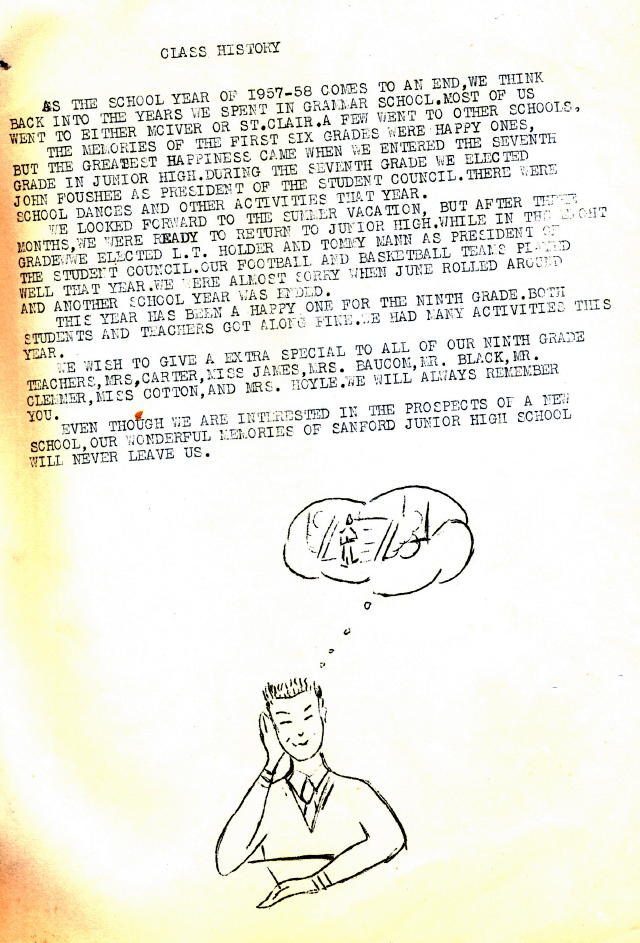 CLASS HISTORY
AS THE SCHOOL YEAR OF 1957-58 COMES TO AN END,WE THINK
BACK INTO THE YEARS WE SPENT IN GRAMMAR SCHOOL.MOST OF US
WENT TO EITHER MCIVER OR ST.CLAIR.A FEW WENT TO OTHER SCHOOLS.
THE MEMORIES OF THE FIRST SIX GRADES WERE HAPPY ONES,
BUT THE GREATEST HAPPINESS CAME WHEN WE ENTERED THE SEVENTH
GRADE IN JUNIOR HIGH.DURING THE SEVENTH GRADE WE ELECTED
JOHN FOUSHEE AS PRESIDENT OF THE STUDENT COUNCIL.THERE WERE
SCHOOL DANCES AND OTHER ACTIVITIES THAT YEAR.
WE LOOKED FORWARD TO THE SUMMER VACATION, BUT AFTER THREE
MONTHS,WE WERE READY TO RETURN TO JUNIOR HIGH.WHILE IN THE EIGHT
GRADE,WE ELECTED L.T. HOLDER AND TOMMY MANN AS PRESIDENT OF
THE STUDENT COUNCIL.OUR FOOTBALL AND BASKETBALL TEAMS PLAYED
WELL THAT YEAR.WE WERE ALMOST SORRY WHEN JUNE ROLLED AROUND
AND ANOTHER SCHOOL YEAR WAS ENDED.
THIS YEAR HAS BEEN A HAPPY ONE FOR THE NINTH GRADE.BOTH
STUDENTS AND TEACHERS GOT ALONG FINE.WE HAD MANY ACTIVITIES THIS
YEAR.
WE WISH TO GIVE A EXTRA SPECIAL TO ALL OF OUR NINTH GRADE
TEACHERS,MRS,CARTER,MISS JAMES,MRS. BAUCOM,MR. BLACK,MR.
CLEMMER,MISS COTTON,AND MRS. HOYLE.WE WILL ALWAYS REMEMBER
YOU.
EVEN THOUGH WE ARE INTERESTED IN THE PROSPECTS OF A NEW
SCHOOL,OUR WONDERFUL MEMORIES OF SANFORD JUNIOR HIGH SCHOOL
WILL NEVER LEAVE US.